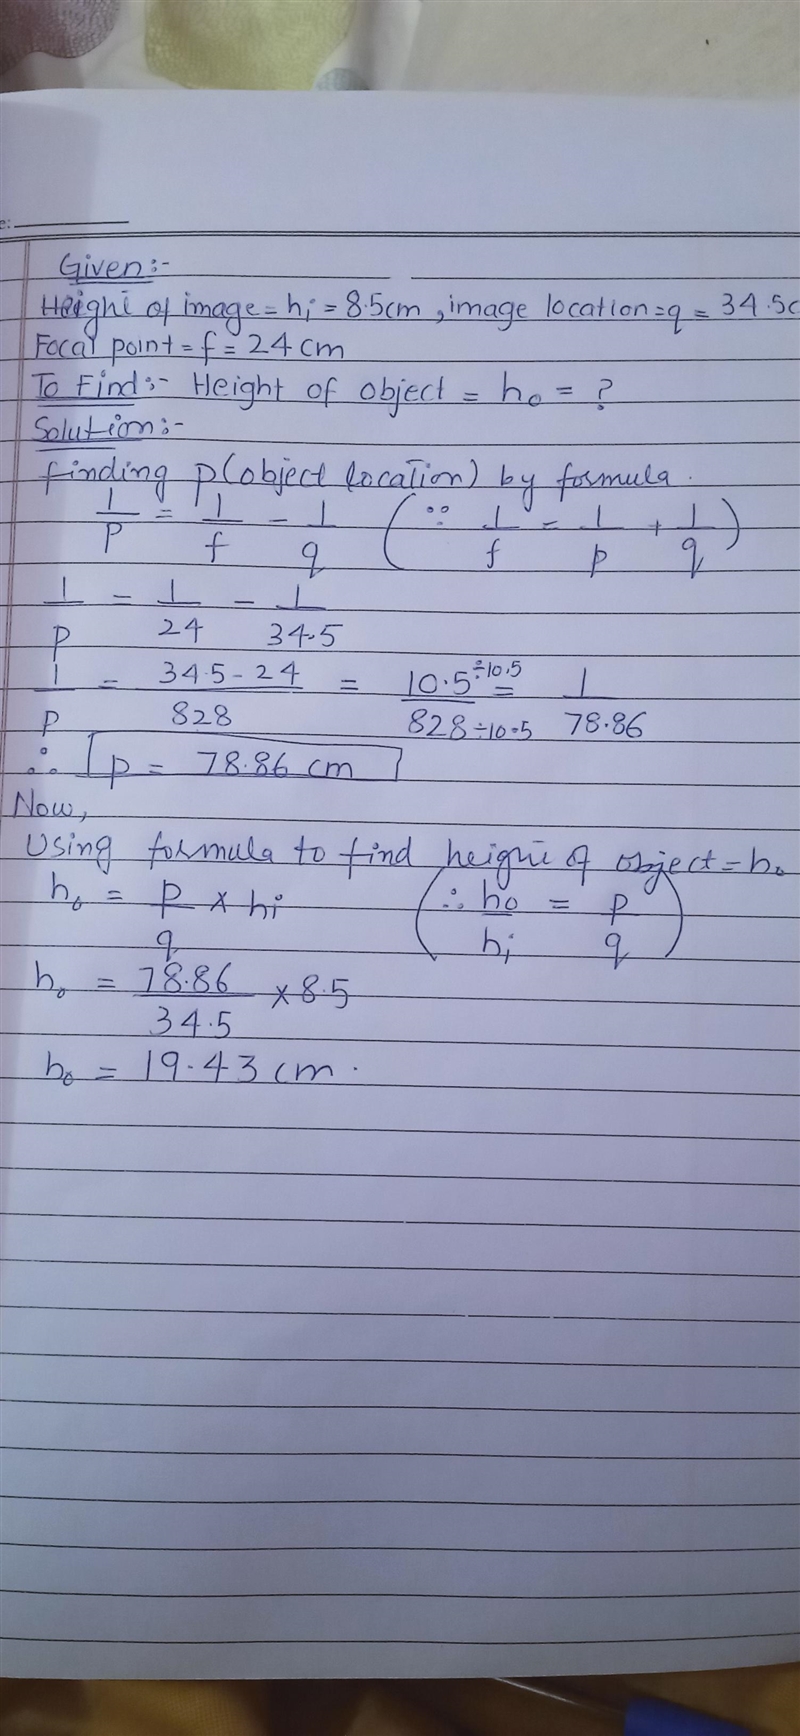 e:
Given:-
Height of image = hi = 8.5cm, image location = q = 34.5c
Focal point = f = 24 cm
To Find:- Height of object = ho = ?
Solution:-
finding p(object location) by formula.
1/p = 1/f - 1/q (∵ 1/f = 1/p + 1/q)
1/p = 1/24 - 1/34.5
1/p = 34.5 - 24/828 = 10.5 ÷10.5/828 ÷10.5 = 1/78.86
∴ p = 78.86 cm
Now,
Using formula to find height of object = ho
ho = p/q × hi (∴ ho/hi = p/q)
ho = 78.86/34.5 × 8.5
ho = 19.43 cm.